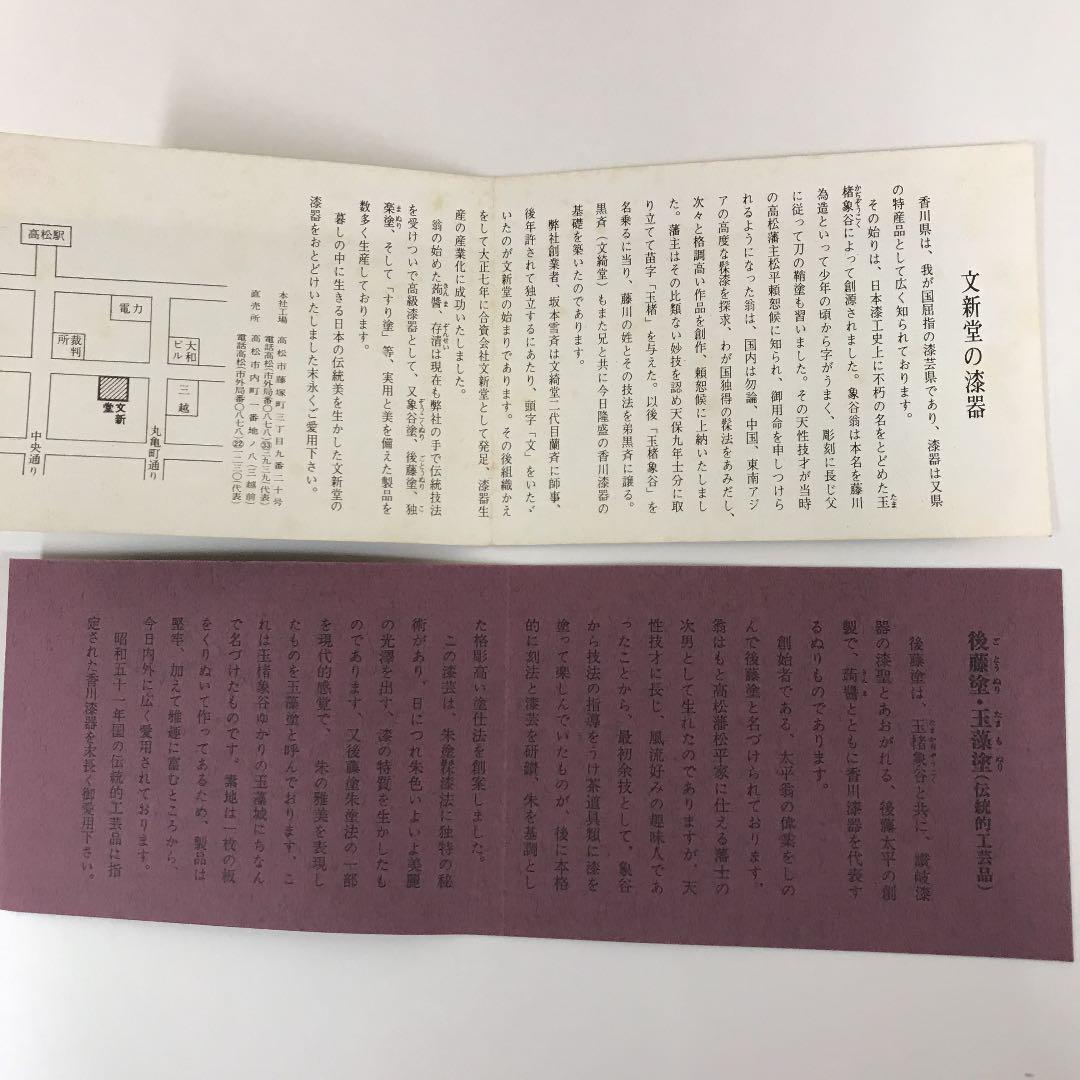 文新堂の漆器
香川県は、我が国屈指の漆芸県であり、漆器は又県
の特産品として広く知られております。
その始りは、日本漆工史上に不朽の名をとどめた玉
楮象谷によって創源されました。象谷翁は本名を藤川
為造といって少年の頃から字がうまく、彫刻に長じ父
に従って刀の鞘塗も習いました。その天性技才が当時
の高松藩主松平頼恕候に知られ、御用命を申しつけら
れるようになった翁は、国内は勿論、中国、東南アジ
アの高度な髹漆を探求、わが国独得の髹法をあみだし、
次々と格調高い作品を創作、頼恕候に上納いたしまし
た。藩主はその比類ない妙技を認め天保九年士分に取
り立てて苗字「玉楮」を与えた。以後「玉楮象谷」を
名乗るに当り、藤川の姓とその技法を弟黒斉に譲る。
黒斉(文綺堂)もまた兄と共に今日隆盛の香川漆器の
基礎を築いたのであります。
弊社創業者、坂本雪斉は文綺堂二代目蘭斉に師事、
後年許されて独立するにあたり、頭字「文」をいたゞ
いたのが文新堂の始まりであります。その後組織かえ
をして大正七年に合資会社文新堂として発足、漆器生
産の産業化に成功いたしました。
翁の始めた蒟醬、存清は現在も弊社の手で伝統技法
を受けついで高級漆器として、又象谷塗、後藤塗、独
楽塗、そして「すり塗」等、実用と美を備えた製品を
数多く生産しております。
暮しの中に生きる日本の伝統美を生かした文新堂の
漆器をおとどけいたしました末永くご愛用下さい。
本社工場 高松市藤塚町三丁目九番二十号
電話高松(市外局番〇八七八)㉝三九三九(代表)
直売所 高松市内町一番地ノ八(三越前)
電話高松(市外局番〇八七八)㉒一二三〇(代表)
高松駅
電力
裁判所
大和ビル
三越
文新堂
丸亀町通り
中央通り
後藤塗・玉藻塗(伝統的工芸品)
後藤塗は、玉楮象谷と共に、讃岐漆
器の漆聖とあおがれる、後藤太平の創
製で、蒟醬とともに香川漆器を代表す
るぬりものであります。
創始者である、太平翁の偉業をしの
んで後藤塗と名づけられております。
翁はもと高松藩松平家に仕える藩士の
次男として生れたのでありますが、天
性技才に長じ、風流好みの趣味人であ
ったことから、最初余技として、象谷
から技法の指導をうけ茶道具類に漆を
塗って楽しんでいたものが、後に本格
的に刻法と漆芸を研鑽、朱を基調とし
た格彫高い塗仕法を創案しました。
この漆芸は、朱塗髹漆法に独特の秘
術があり、日につれ朱色いよいよ美麗
の光澤を出す、漆の特質を生かしたも
のであります、又後藤塗朱塗法の一部
を現代的感覚で、朱の雅美を表現し
たものを玉藻塗と呼んでおります、こ
れは玉楮象谷ゆかりの玉藻城にちなん
で名づけたものです。素地は一枚の板
をくりぬいて作ってあるため、製品は
堅牢、加えて雅趣に富むところから、
今日内外に広く愛用されております。
昭和五十一年国の伝統的工芸品に指
定された香川漆器を末長く御愛用下さい。